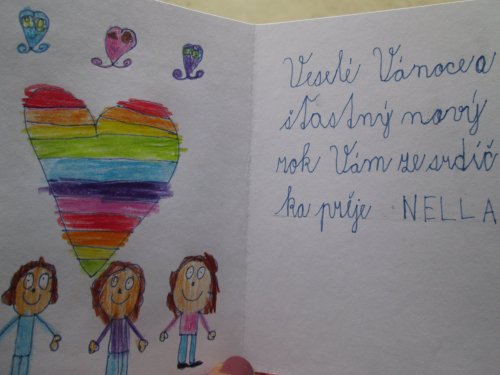 Veselé Vánoce a
šťastný nový
rok Vám ze srdíč
ka přeje NELLA